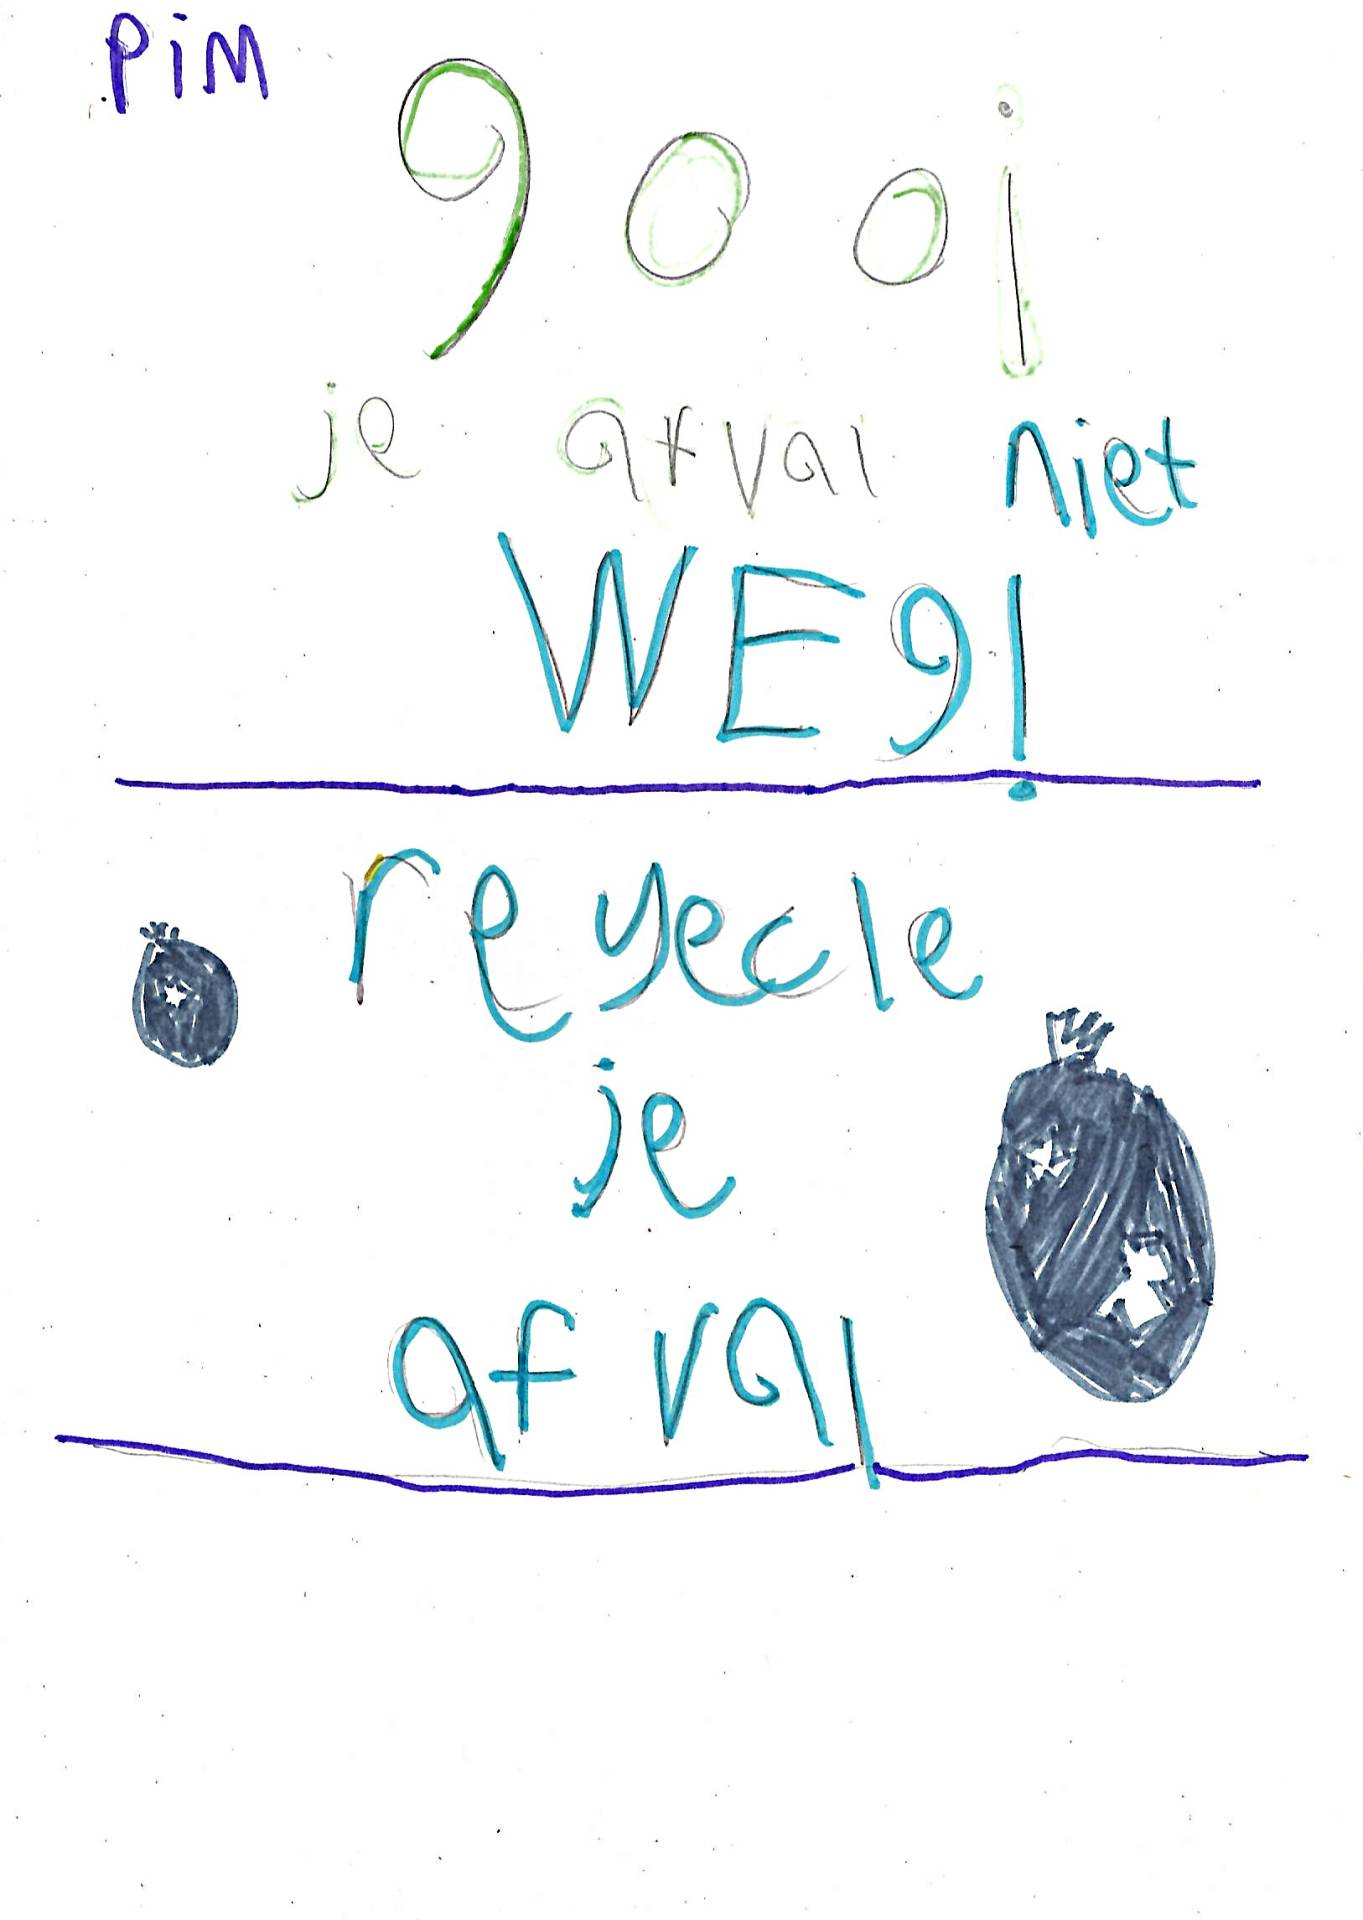 PiM
gooj
je afval niet
WEg!
reyecle
je
afval